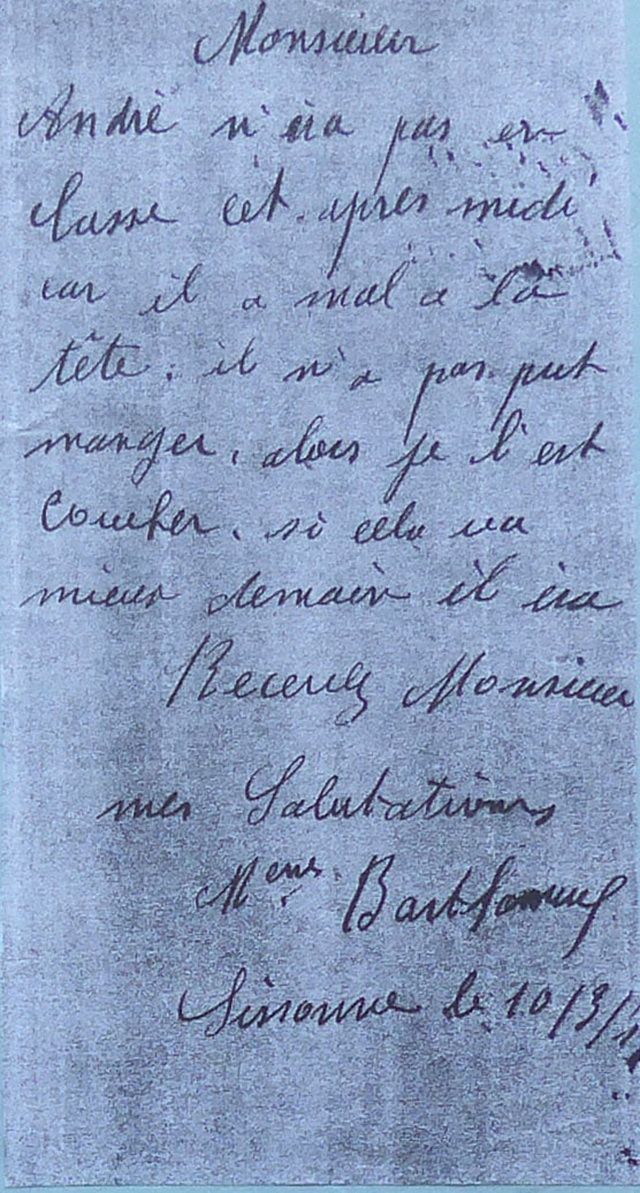 Monsieur
André n'ira pas en
classe cet. après midi
car il a mal a la
tête. il n'a pas put
manger, alors je l'est
coucher. si cela va
mieux demain il ira
Recevez Monsieur
mes Salutations
Mme
Sissonne le 10/3/